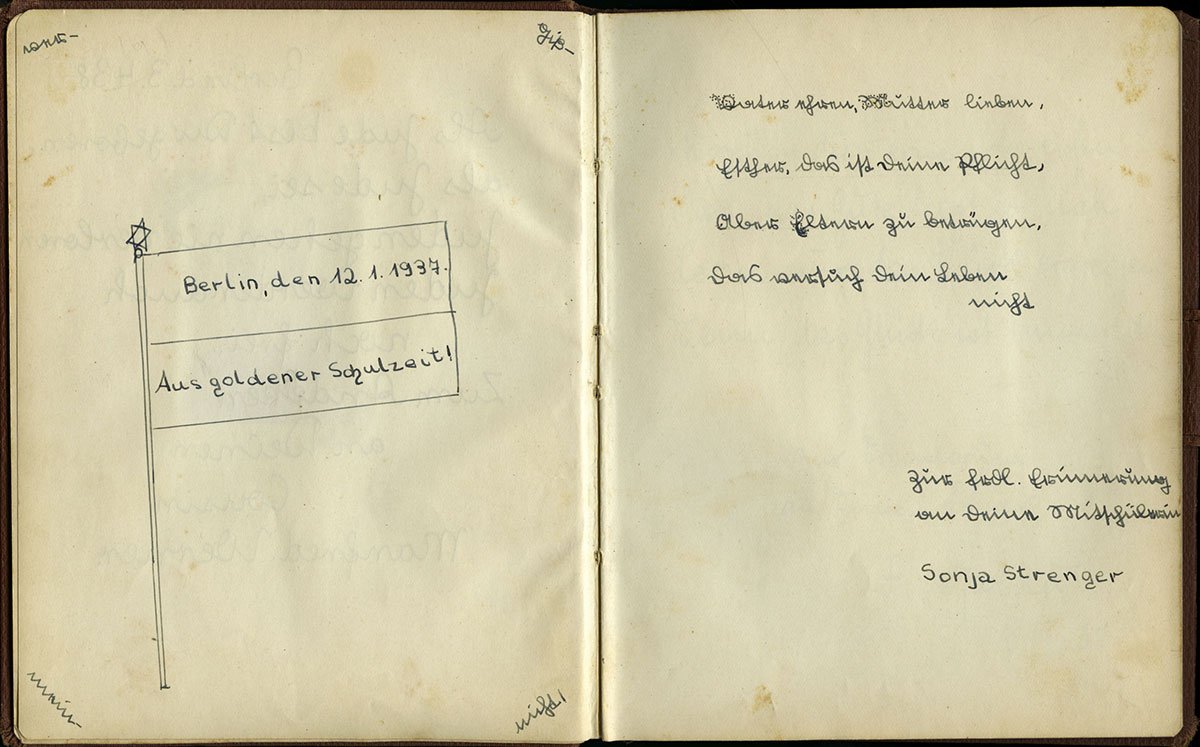 ver-
giß-
Berlin, den 12.1.1937.
Aus goldener Schulzeit!
mein-
nicht!
Vater ehren, Mutter lieben,
Esther, das ist deine Pflicht,
Aber Eltern zu betrügen,
das versuch dein Leben
nicht
Zur frdl. Erinnerung
an deine Mitschülerin
Sonja Strenger